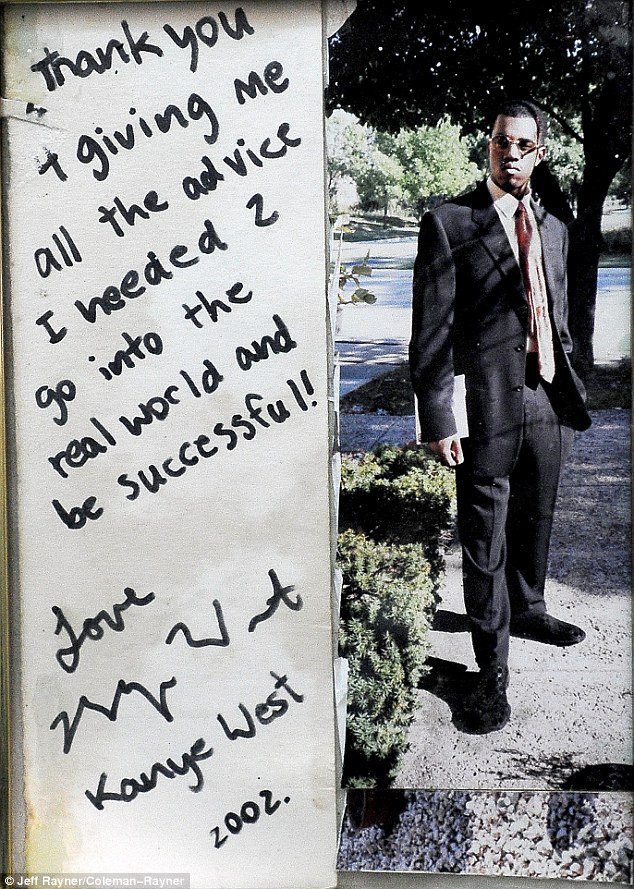 Thank you
4 giving me
all the advice
I needed 2
go into the
real world and
be successful!
Love
Kanye West
2002.
© Jeff Rayner/Coleman-Rayner